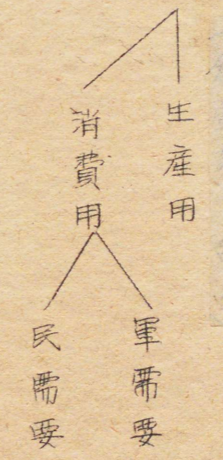 生産用
消費用
軍需要
民需要